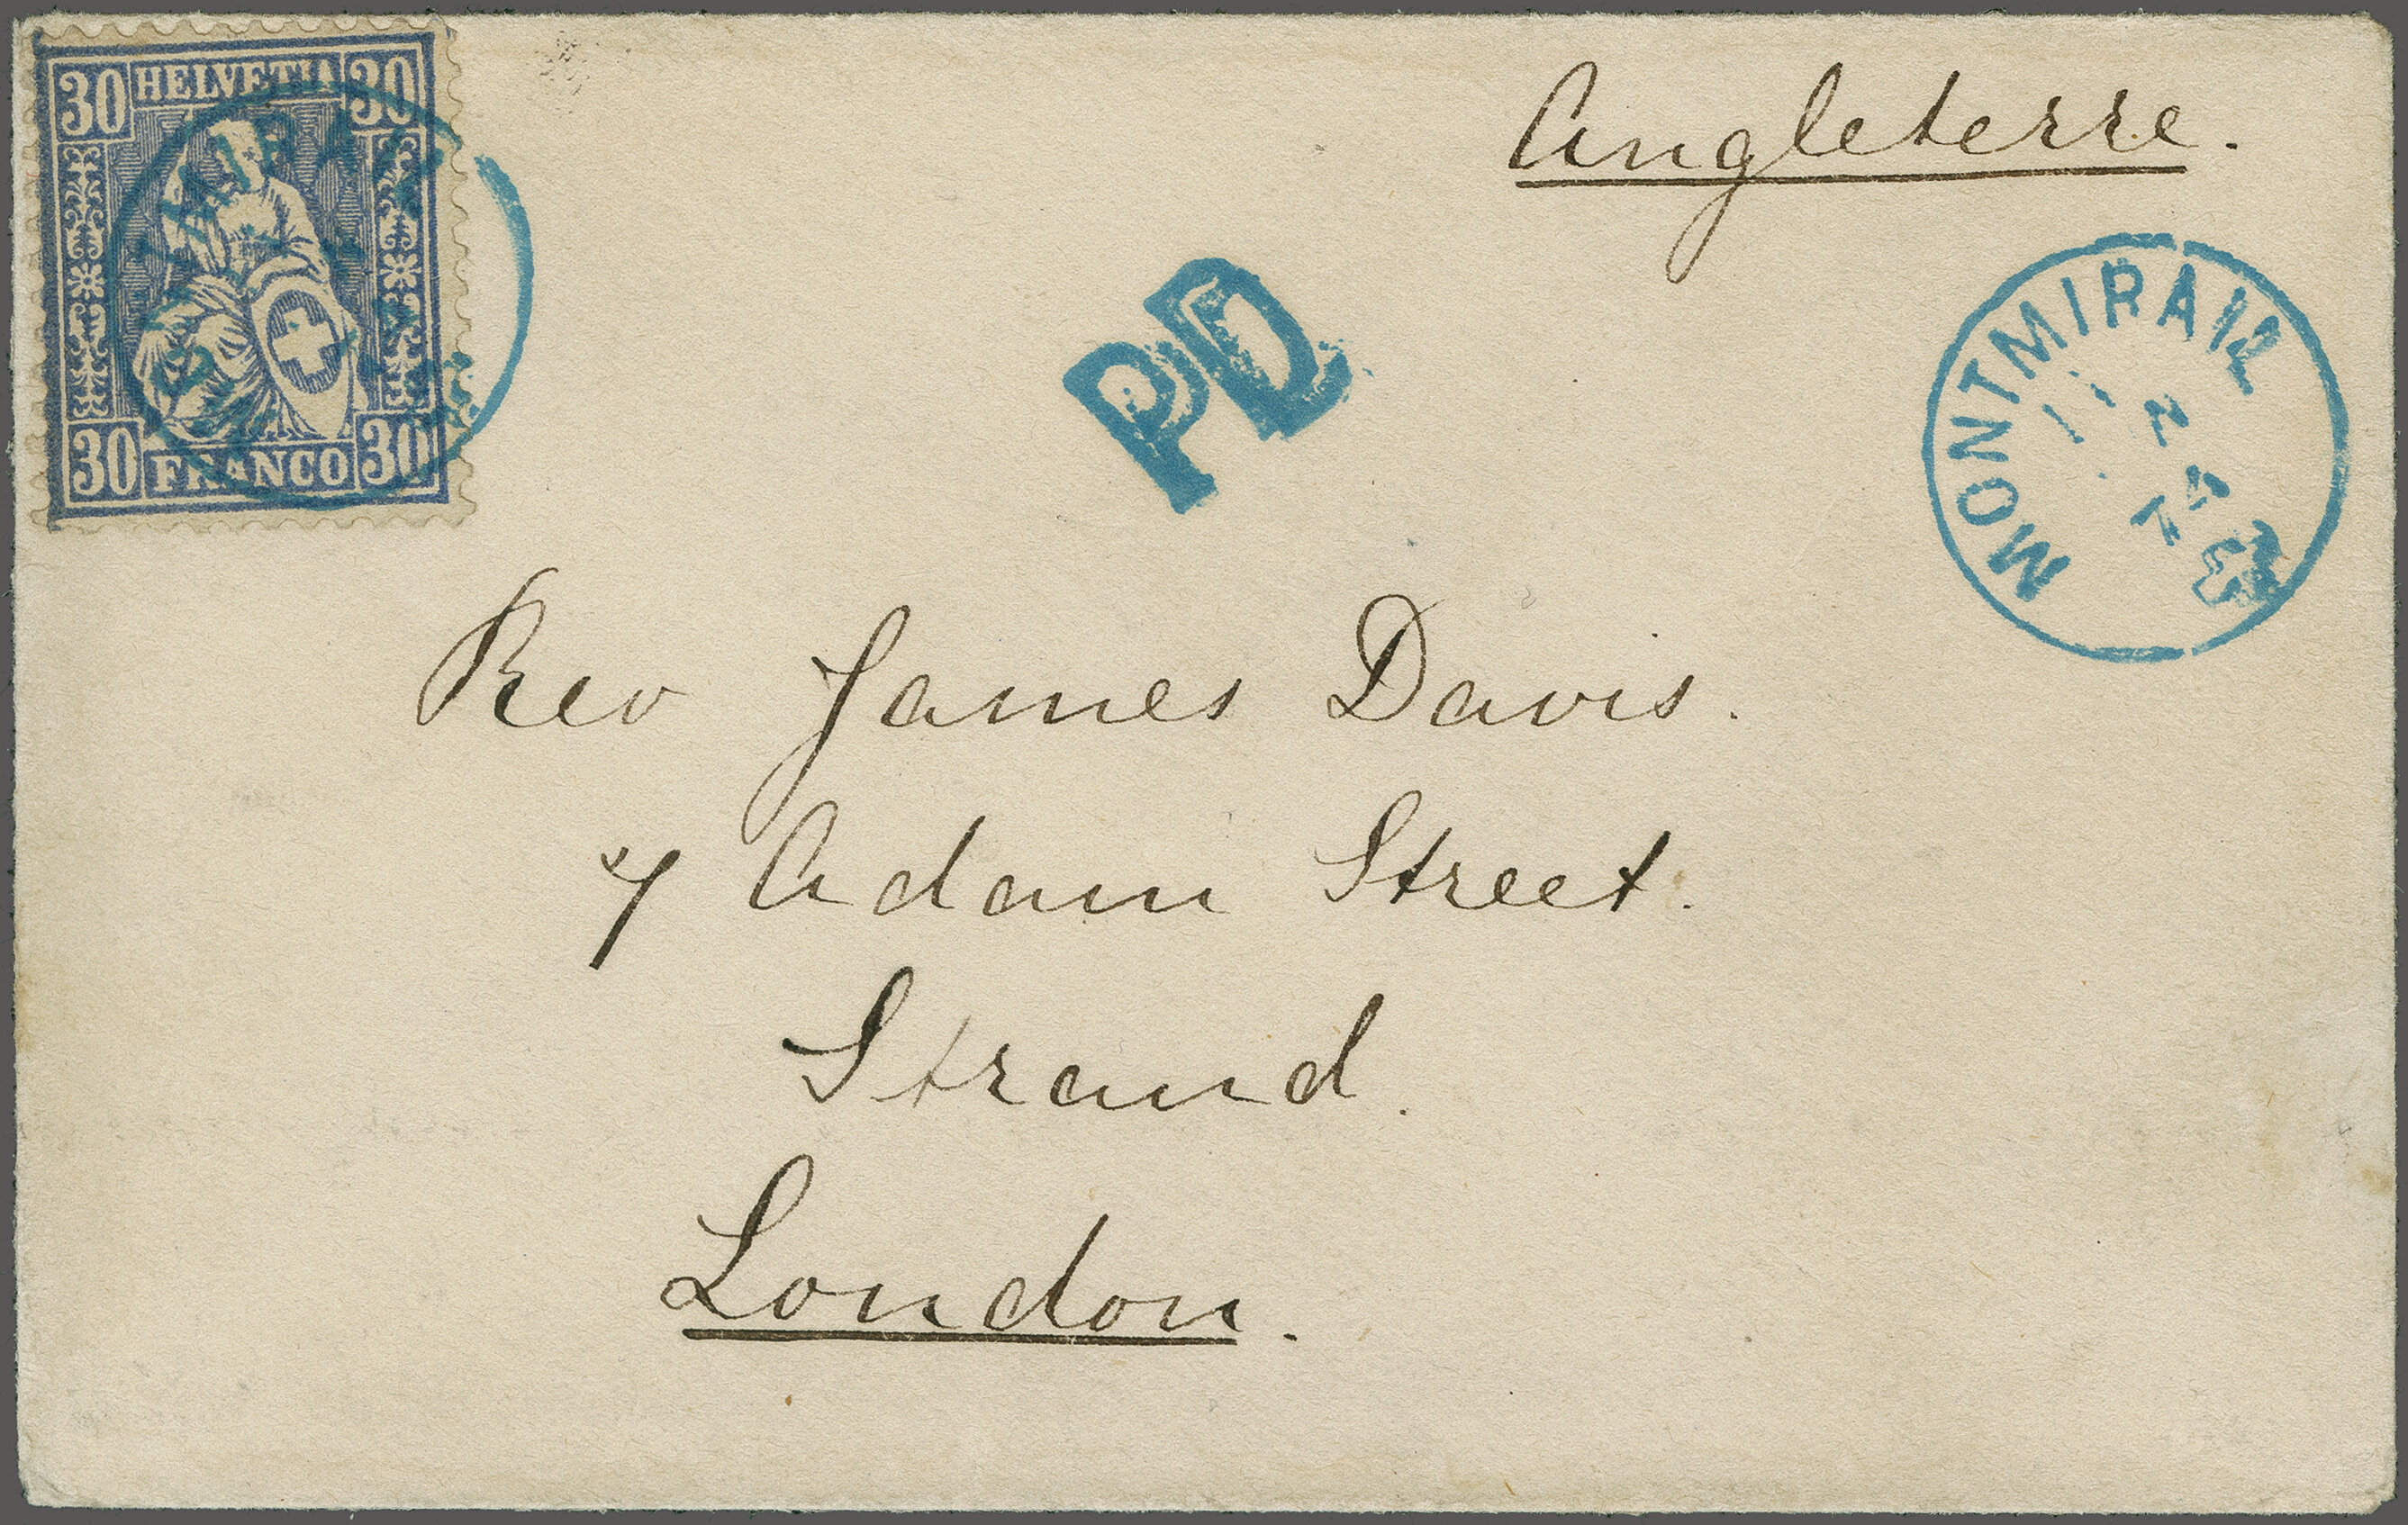 30 HELVETIA 30
30 FRANCO 30
Angleterre.
PD
MONTMIRAIL
Rev James Davis.
7 Adam Street.
Strand.
London.